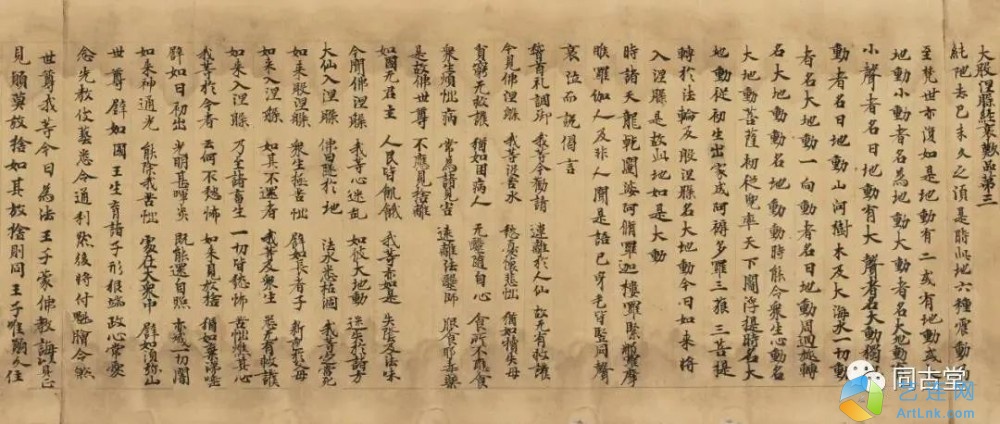 大般涅槃經哀歎品第三
純陁去已未久之頃是時此地六種震動乃
至梵世亦復如是地動有二或有地動或大
地動小動者名為地動大動者名大地動有
小聲者名曰地動有大聲者名大動獨地
動者名曰地動山河樹木及大海水一切動
者名大地動一向動者名曰地動周迴旋轉
名大地動動名地動動時能令眾生心動名
大地動菩薩初從兜率天下閻浮提時名大
地動從初生出家成阿耨多羅三藐三菩提
轉於法輪及般涅槃名大地動今日如來將
入涅槃是故此地如是大動
時諸天龍乾闥婆阿脩羅迦樓羅緊那羅摩
睺羅伽人及非人聞是語已身毛皆豎同聲
哀泣而說偈言
稽首禮調御 我等今勸請 遠離於人仙 故无有救護
今見佛涅槃 我等沒苦海 愁憂懷悲惱 猶如犢失母
貧窮无救護 猶如困病人 无醫隨自心 食所不應食
眾生煩惱病 常為諸見害 遠離法醫師 服食邪毒藥
是故佛世尊 不應見捨離
如國无君主 人民皆飢饉 我等亦如是 失蔭及法味
今聞佛涅槃 我等心迷亂 如彼大地動 迷失於諸方
大仙入涅槃 佛日墜於地 法水悉枯涸 我等定當死
如來般涅槃 眾生極苦惱 譬如長者子 新喪於父母
如來入涅槃 如其不還者 我等及眾生 悉无有救護
如來入涅槃 乃至諸畜生 一切皆愁怖 苦惱燋其心
我等於今者 云何不愁怖 如來見放捨 猶如棄涕唾
譬如日初出 光明甚暉炎 既能還自照 亦滅一切闇
如來神通光 能除我苦惱 處在大眾中 譬如須弥山
世尊譬如國王生育諸子形貌端政心常愛
念先教伎藝悉令通利然後將付魁膾令煞
世尊我等今日為法王子蒙佛教誨以具正
見願莫放捨如其放捨則同王子唯願久住
同古堂
艺连网
ArtLnk.com